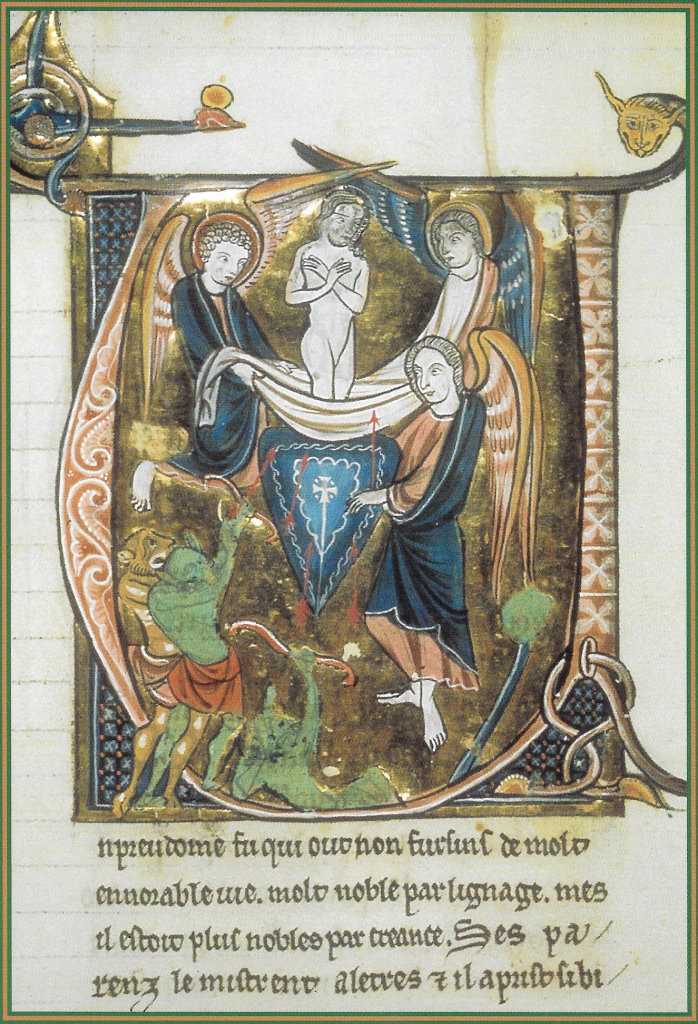 npreudome fu qui out non furſinſ de molt
ennorable uie. molt noble par lignage. mes
il eſtoit pluſ nobles par creance. Ses pa/
renz le miſtrent a letres ⁊ il apriſt ſi bi/